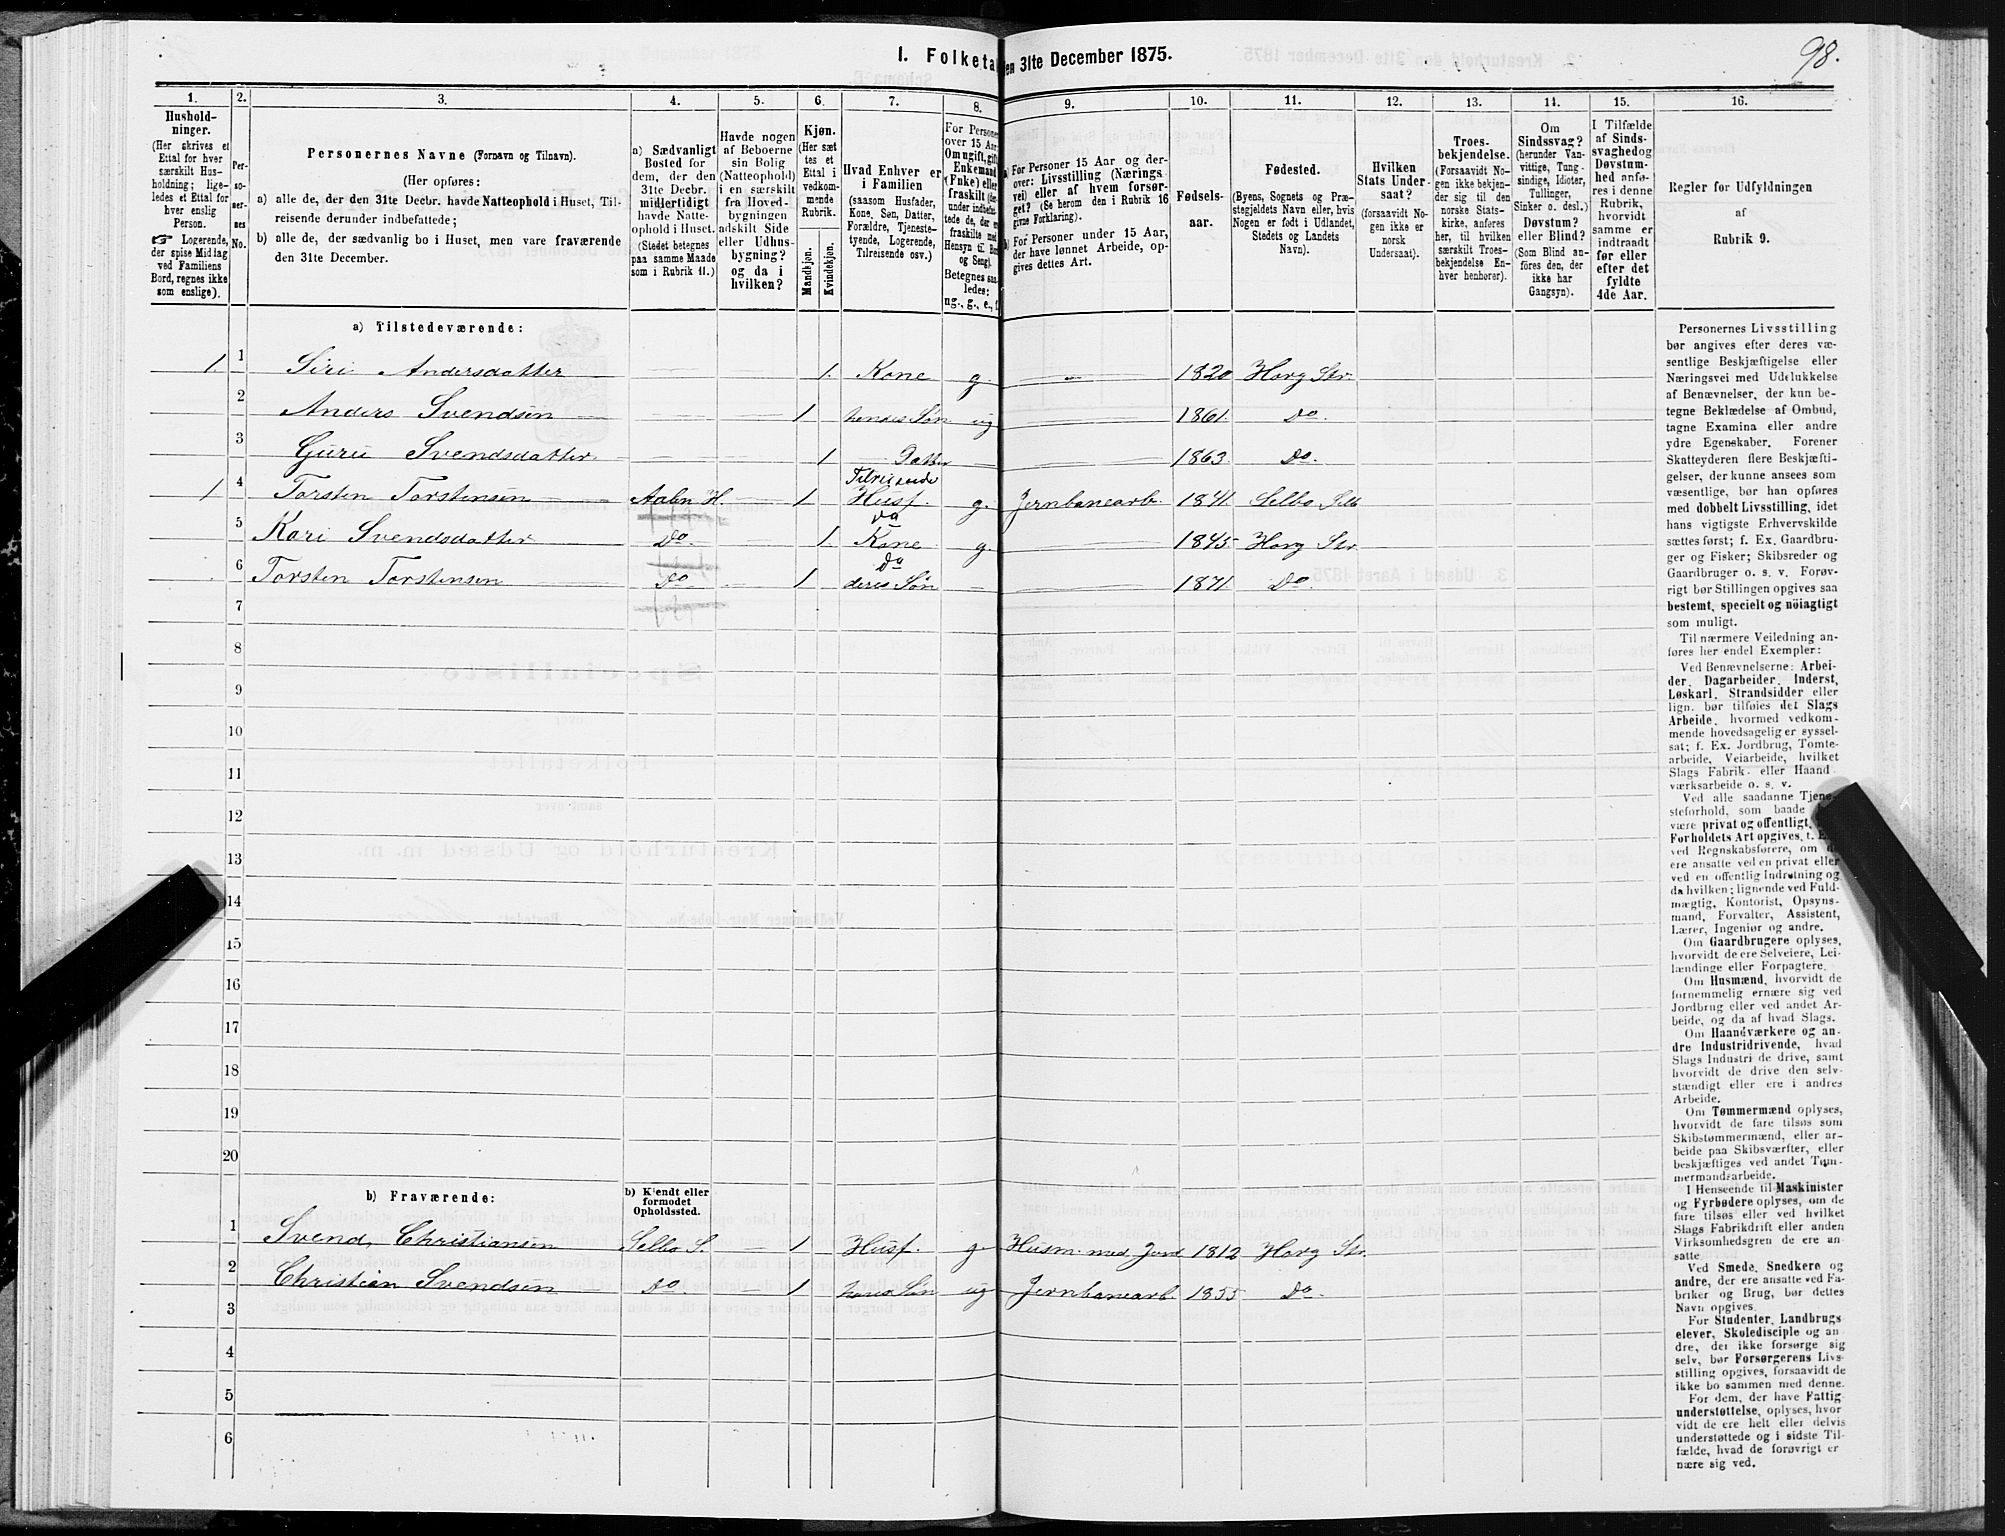 98.
I. Folketa en 31te December 1875.
1. 2. 3. 4. 5. 6. 7. 8. 9. 10. 11. 12. 13. 14. 15. 16.
Hushold-
ninger.
(Her skrives et
Ettal for hver
særskilt Hus-
holdning; lige-
ledes et Ettal for
hver enslig
Person.
☞ Logerende,
der spise Middag
ved Familiens
Bord, regnes ikke
som enslige).
Per-
so-
ner-
nes
No.
Personernes Navne (Fornavn og Tilnavn).
(Her opføres:
a) alle de, der den 31te Decbr. havde Natteophold i Huset, Til-
reisende derunder indbefattede;
b) alle de, der sædvanlig bo i Huset, men vare fraværende
den 31te December.
a) Sædvanligt
Bosted for
dem, der den
31te Decbr.
midlertidigt
havde Natte-
ophold i Huset.
(Stedet betegnes
paa samme Maade
som i Rubrik 11.)
Havde nogen
af Beboerne
sin Bolig
(Natteophold)
i en særskilt
fra Hoved-
bygningen
adskilt Side
eller Udhus-
bygning?
og da i
hvilken?
Kjøn.
(Her sæt
tes et
Ettal i
vedkom-
mende
Rubrik.
Mandkjøn.
Kvindekjøn.
Hvad Enhver er
i Familien
(saasom Husfader,
Kone, Søn, Datter,
Forældre, Tjeneste-
tyende, Logerende,
Tilreisende osv.)
For Persone
over 15 Aar
Om ugift, gift
Enkemand
(Enke) eller
fraskilt
Betegnes saa-
ledes:
ug., g., e., f.
a) For Personer 15 Aar og der-
over: Livsstilling (Nærings
vei) eller af hvem forsør-
get? (Se herom den i Rubrik 16
givne Forklaring).
b) For Personer under 15 Aar,
der have lønnet Arbeide, op-
gives dettes Art.
Fødsels-
aar.
Fødested.
(Byens, Sognets og Præ-
stegjeldets Navn eller, hvis
Nogen er født i Udlandet,
Stedets og Landets
Navn).
Hvilken
Stats Under-
saat?
(forsaavidt No-
gen ikke er
norsk
Undersaat).
Troes-
bekjendelse.
(Forsaavidt No-
gen ikke bekjen-
der sig til den
norske Stats-
kirke, anføres
her, til hvilken
særskilt Troes-
bekjendelse En-
hver henhører).
Om
Sindssvag?
(herunder Van-
vittige, Tung-
sindige, Idioter,
Tullinger,
Sinker o. desl.)
Døvstum?
eller Blind?
(Som Blind an-
føres den, der
ikke har
Gangsyn).
I Tilfælde
af Sinds-
svaghed og
Døvstum-
hed anfø-
res i denne
Rubrik,
hvorvidt
samme er
indtraadt
før eller
efter det
fyldte
4de Aar.
Regler for Udfyldningen
af
Rubrik 9.
a) Tilstedeværende:
1 1 Siri Andersdatter 1. Kone g. 1820 Horg Str.
2 Anders Svendsen 1 hendes Søn ug 1861. Do.
3 Guru Svendsdatter 1 Datter 1863 Do.
1 4 Torsten Torstensen Aalen H. 1 Tilreisende Husf. g. Jernbanearb. 1841. Selbo Selb
5 Kari Svendsdatter Do 1. Do Kone g. 1845 Horg Str.
6 Torsten Torstensen Do 1 Do deres Søn 1871. Do.
7
8
9
10
11
12
13
14
15
16
17
18
19
20
b) Fraværende: b) Kjendt eller
formodet
Opholdssted.
1 Svend Christiansen Selbo S. 1 Husf. g Husm. med Jord 1812 Horg Str.
2 Christian Svendsen Do. 1 hans Søn ug Jernbanearb. 1855 Do.
3
4
5
6
Personernes Livsstilling
bør angives efter deres væ-
sentlige Beskjæftigelse eller
Næringsvei med Udelukkelse
af Benævnelser, der kun be-
tegne Beklædelse af Ombud,
tagne Examina eller andre
ydre Egenskaber. Forener
Skatteyderen flere Beskjæfti-
gelser, der kunne ansees som
væsentlige, bør han opføres
med dobbelt Livsstilling, idet
hans vigtigste Erhvervskilde
sættes først; f. Ex. Gaardbru-
ger og Fisker; Skibsreder og
Gaardbruger o. s. v. Forøv-
rigt bør Stillingen opgives saa
bestemt, specielt og nöiagtigt
som muligt.
Til nærmere Veiledning an-
føres her endel Exempler:
Ved Benævnelserne: Arbei-
der, Dagarbeider, Inderst,
Løskarl, Strandsidder eller
lign. bør tilføies det Slags
Arbeide, hvormed vedkom-
mende hovedsagelig er syssel-
sat; f. Ex. Jordbrug, Tomte-
arbeide, Veiarbeide, hvilket
Slags Fabrik- eller Haand-
værksarbeide o. s. v.
Ved alle saadanne Tjene-
steforhold, som baade
være privat og offentligt,
Forholdets Art opgives, t.
ved Regnskabsførere, om
ere ansatte ved en privat eller
ved en offentlig Indretning og
da hvilken; lignende ved Fuld-
mægtig, Kontorist, Opsyns-
mand, Forvalter, Assistent,
Lærer, Ingeniør og andre.
Om Gaardbrugere oplyses,
hvorvidt de ere Selveiere, Lei-
lændinge eller Forpagtere.
Om Husmænd, hvorvidt de
fornemmelig ernære sig ved
Jordbrug eller ved andet Ar-
beide, og da af hvad Slags.
Om Haandværkere og an-
dre Industridrivende, hvad
Slags Industri de drive, samt
hvorvidt de drive den selv-
stændigt eller ere i andres
Arbeide.
Om Tømmermænd oplyses,
hvorvidt de fare tilsøs som
Skibstømmermænd, eller ar-
beide paa Skibsværfter, eller
beskjæftiges ved andet Tøm-
mermandsarbeide.
I Henseende til Maskinister
og Fyrbødere oplyses, om de
fare tilsøs eller ved hvilket
Slags Fabrikdrift eller anden
Virksomhedsgren de ere an-
satte
Ved Smede, Snedkere og
andre, der ere ansatte ved Fa-
briker og Brug, bør dettes
Navn opgives.
For Studenter, Landbrugs-
elever, Skoledisciple og an-
dre, der ikke forsørge sig
selv, bør Forsørgerens Livs-
stilling opgives, forsaavidt de
ikke bo sammen med denne.
For dem, der have Fattig-
understøttelse, oplyses, hvor
vidt de ere helt eller delvis
understøttede og i sidste Til-
fælde, hvad de forøvrigt er
nære sig ved.